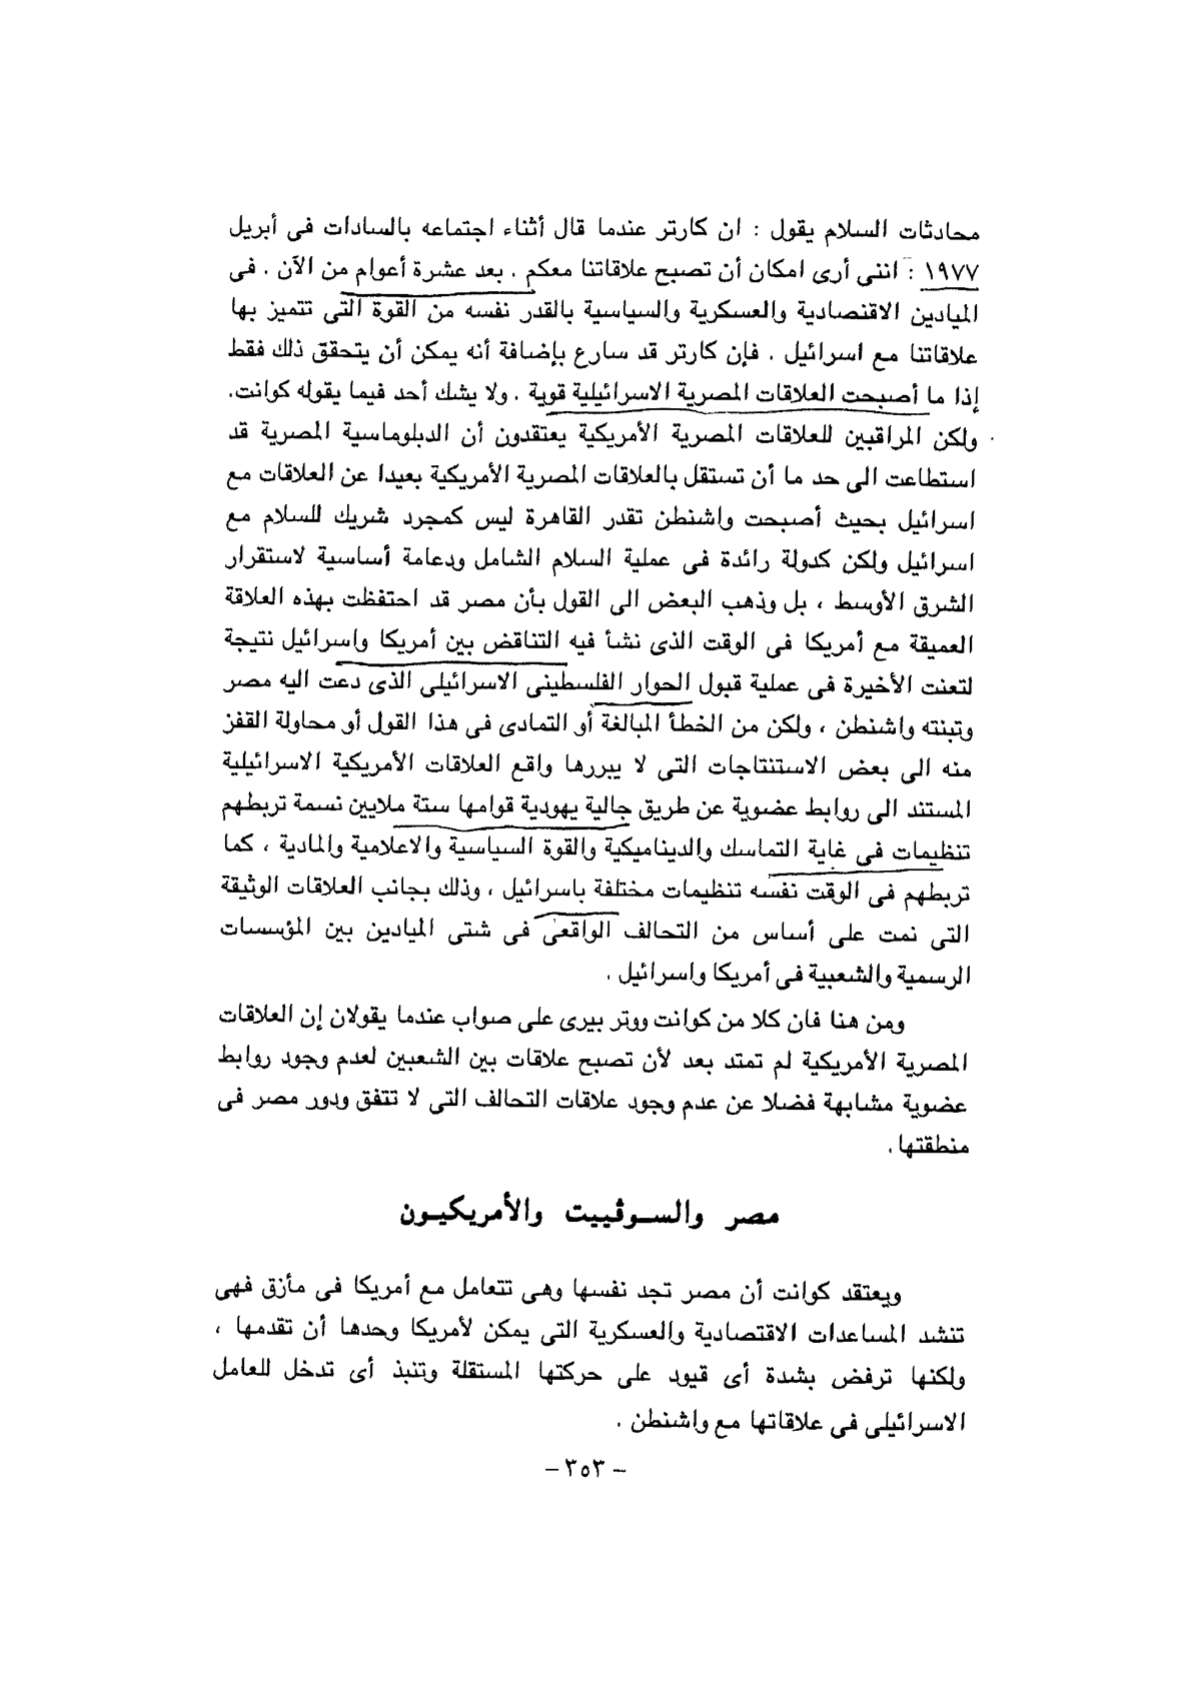 محادثات السلام يقول : ان كارتر عندما قال أثناء اجتماعه بالسادات فى أبريل
١٩٧٧ : اننى أرى امكان أن تصبح علاقاتنا معكم . بعد عشرة أعوام من الآن . فى
الميادين الاقتصادية والعسكرية والسياسية بالقدر نفسه من القوة التى تتميز بها
علاقاتنا مع اسرائيل . فإن كارتر قد سارع بإضافة أنه يمكن أن يتحقق ذلك فقط
إذا ما أصبحت العلاقات المصرية الاسرائيلية قوية . ولا يشك أحد فيما يقوله كوانت.
ولكن المراقبين للعلاقات المصرية الأمريكية يعتقدون أن الدبلوماسية المصرية قد
استطاعت الى حد ما أن تستقل بالعلاقات المصرية الأمريكية بعيدا عن العلاقات مع
اسرائيل بحيث أصبحت واشنطن تقدر القاهرة ليس كمجرد شريك للسلام مع
اسرائيل ولكن كدولة رائدة فى عملية السلام الشامل ودعامة أساسية لاستقرار
الشرق الأوسط ، بل وذهب البعض الى القول بأن مصر قد احتفظت بهذه العلاقة
العميقة مع أمريكا فى الوقت الذى نشأ فيه التناقض بين أمريكا واسرائيل نتيجة
لتعنت الأخيرة فى عملية قبول الحوار الفلسطينى الاسرائيلى الذى دعت اليه مصر
وتبنته واشنطن ، ولكن من الخطأ المبالغة أو التمادى فى هذا القول أو محاولة القفز
منه الى بعض الاستنتاجات التى لا يبررها واقع العلاقات الأمريكية الاسرائيلية
المستند الى روابط عضوية عن طريق جالية يهودية قوامها ستة ملايين نسمة تربطهم
تنظيمات فى غاية التماسك والديناميكية والقوة السياسية والاعلامية والمادية ، كما
تربطهم فى الوقت نفسه تنظيمات مختلفة باسرائيل ، وذلك بجانب العلاقات الوثيقة
التى نمت على أساس من التحالف الواقعى فى شتى الميادين بين المؤسسات
الرسمية والشعبية فى أمريكا واسرائيل .
ومن هنا فان كلا من كوانت ووتر بيرى على صواب عندما يقولان إن العلاقات
المصرية الأمريكية لم تمتد بعد لأن تصبح علاقات بين الشعبين لعدم وجود روابط
عضوية مشابهة فضلا عن عدم وجود علاقات التحالف التى لا تتفق ودور مصر فى
منطقتها .
مصر والسوڤييت والأمريكيون
ويعتقد كوانت أن مصر تجد نفسها وهى تتعامل مع أمريكا فى مأزق فهى
تنشد المساعدات الاقتصادية والعسكرية التى يمكن لأمريكا وحدها أن تقدمها ،
ولكنها ترفض بشدة أى قيود على حركتها المستقلة وتنبذ أى تدخل للعامل
الاسرائيلى فى علاقاتها مع واشنطن .
– ٣٥٣ –